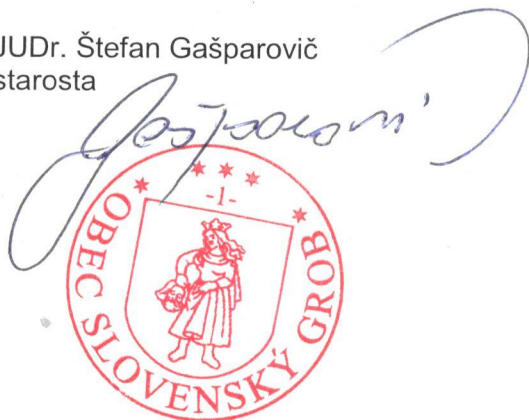 JUDr. Štefan Gašparovič
starosta
Gašparovič
-1-
OBEC SLOVENSKÝ GROB